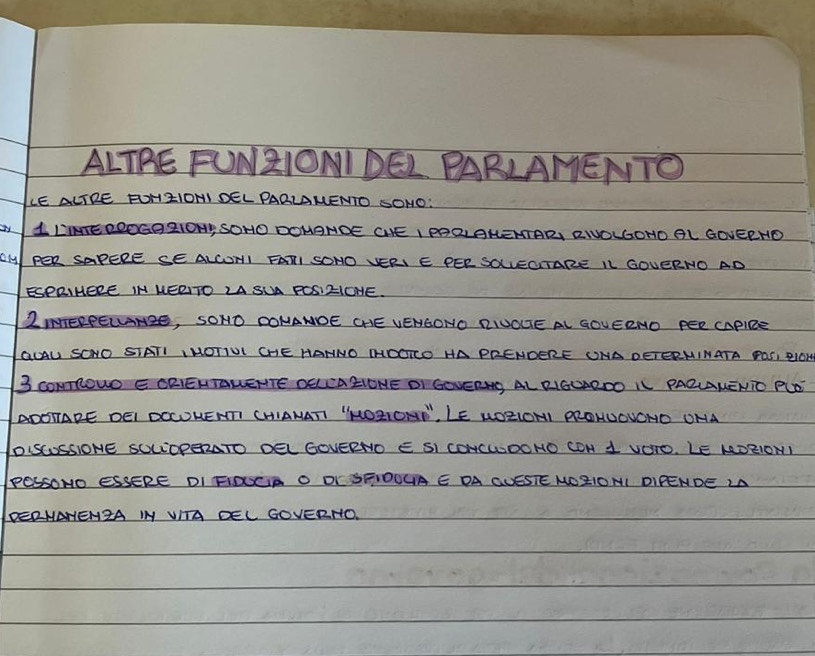 ALTRE FUNZIONI DEL PARLAMENTO
LE ALTRE FUNZIONI DEL PARLAMENTO SONO:
1 L'INTERROGAZIONI, SONO DOMANDE CHE I PARLAMENTARI RIVOLGONO AL GOVERNO
PER SAPERE SE ALCUNI FATI SONO VERI E PER SOLLECITARE IL GOVERNO AD
ESPRIMERE IN MERITO LA SUA POSIZIONE.
2 INTERPELLANZE, SONO DOMANDE CHE VENGONO RIVOLTE AL GOVERNO PER CAPIRE
QUALI SONO STATI I MOTIVI CHE HANNO INDOTTO HA PRENDERE UNA DETERMINATA POSIZIONE
3 CONTROLLO E ORIENTAMENTE DELL'AZIONE DI GOVERNO, AL RIGUARDO IL PARLAMENTO PUÒ
ADOTTARE DEI DOCUMENTI CHIAMATI "MOZIONI". LE MOZIONI PROMUOVONO UNA
DISCUSSIONE SULL'OPERATO DEL GOVERNO E SI CONCLUDONO CON 1 VOTO. LE MOZIONI
POSSONO ESSERE DI FIDUCIA O DI SFIDUCIA E DA QUESTE MOZIONI DIPENDE LA
PERMANENZA IN VITA DEL GOVERNO.